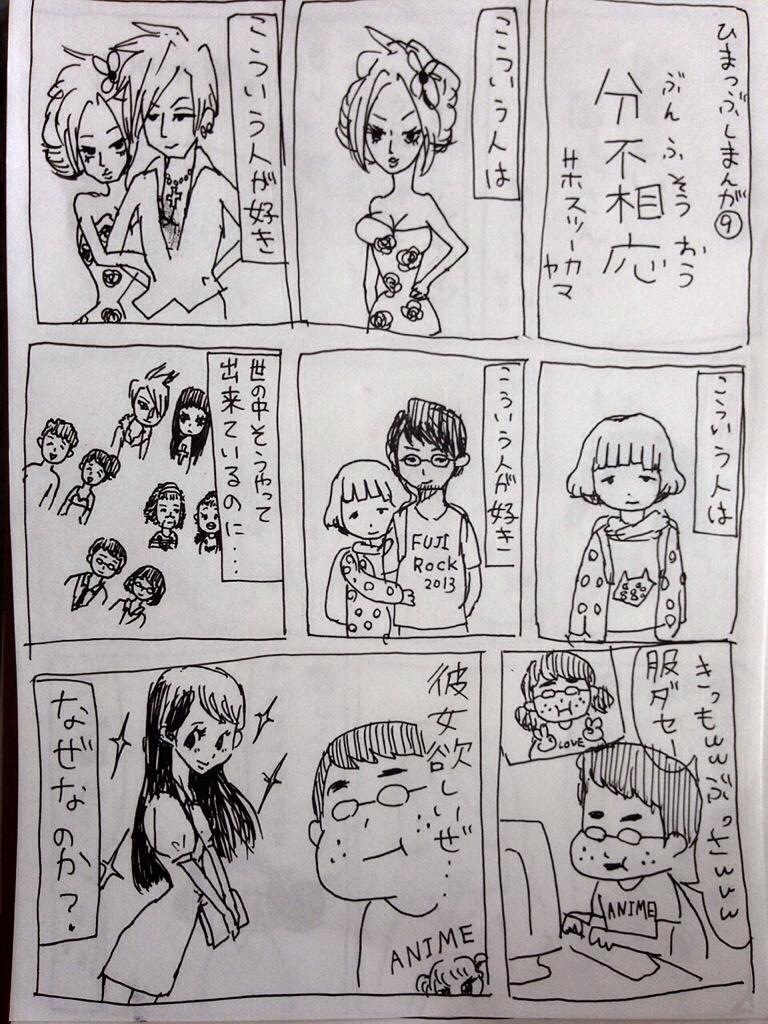 ひまつぶしまんが⑨
ぶんふそうおう
分不相応
#ホスツーカ
ヤマ
こういう人は
こういう人が好き
こういう人は
こういう人が好き
FUJI
Rock
2013
世の中そうやって
出来ているのに…
きっもwwぶっさwww
服ダセー
LOVE
ANIME
彼女欲しいぜ…
ANIME
なぜなのか?